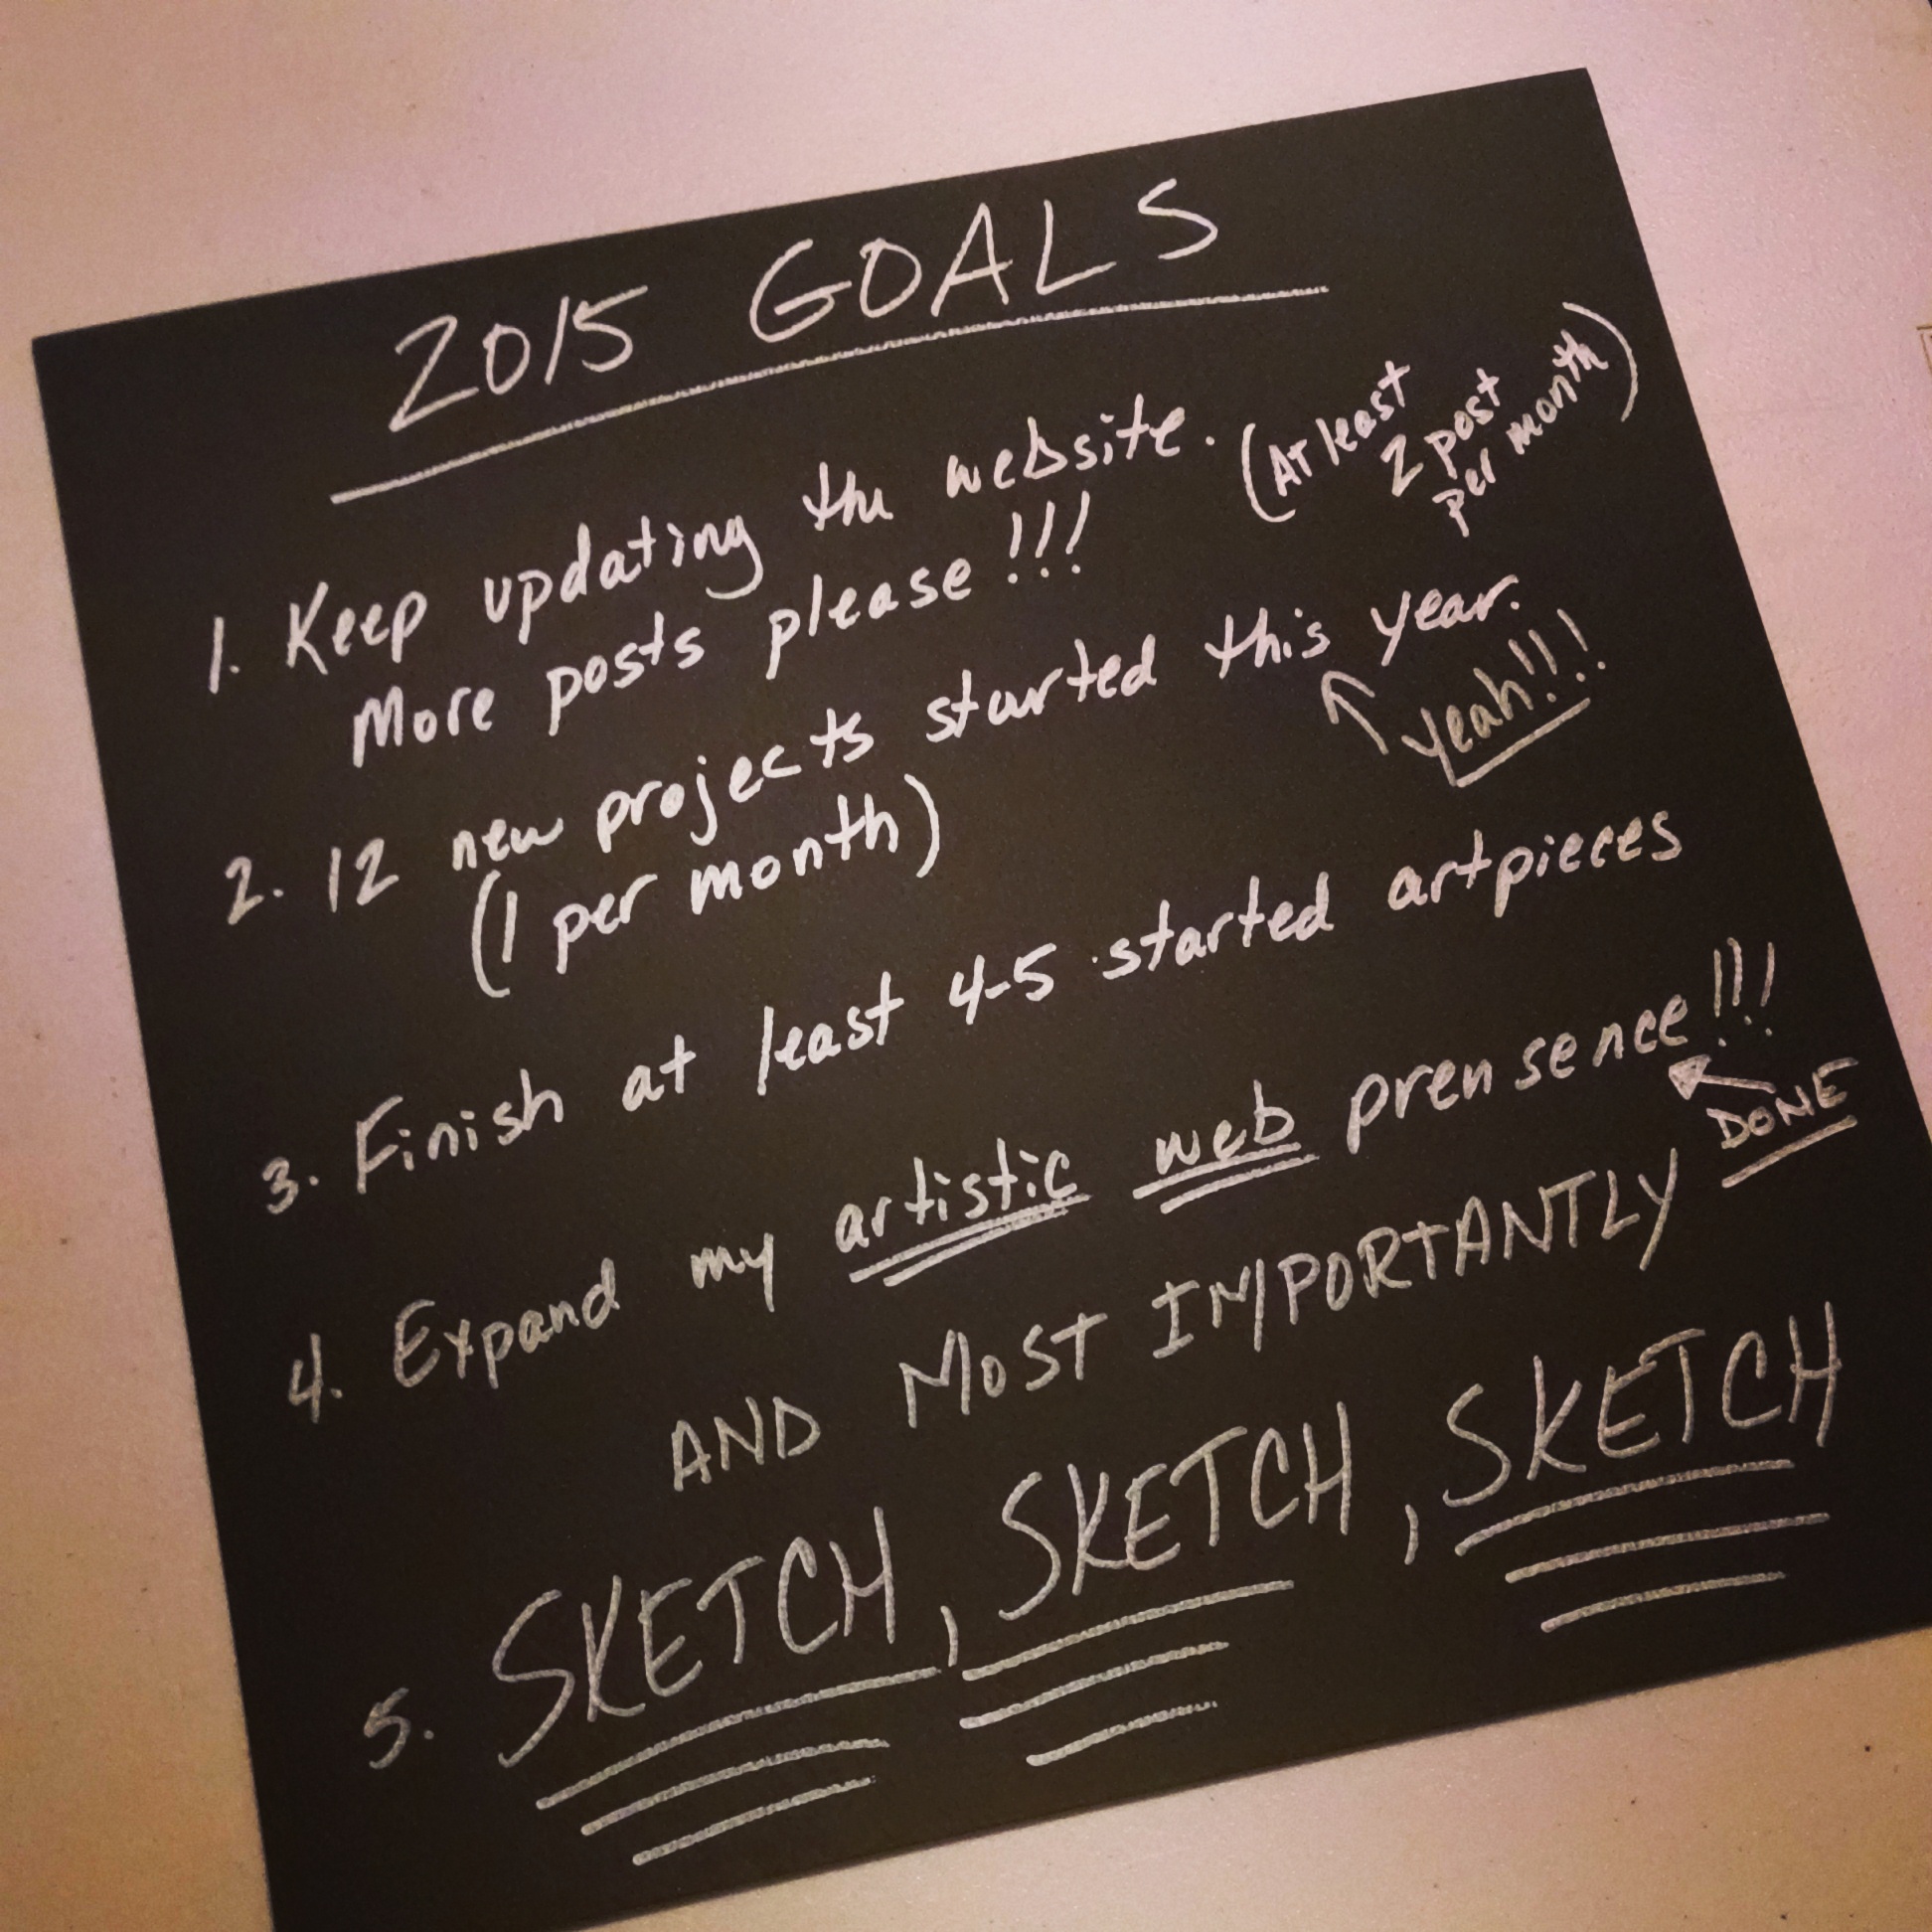 2015 GOALS
1. Keep updating the website. (At least
2 post
per month)
More posts please!!!
2. 12 new projects started this year.
(1 per month)
Yeah!!!
3. Finish at least 4-5 started artpieces
4. Expand my artistic web prensence!!!
DONE
AND MOST IMPORTANTLY
5. SKETCH, SKETCH, SKETCH